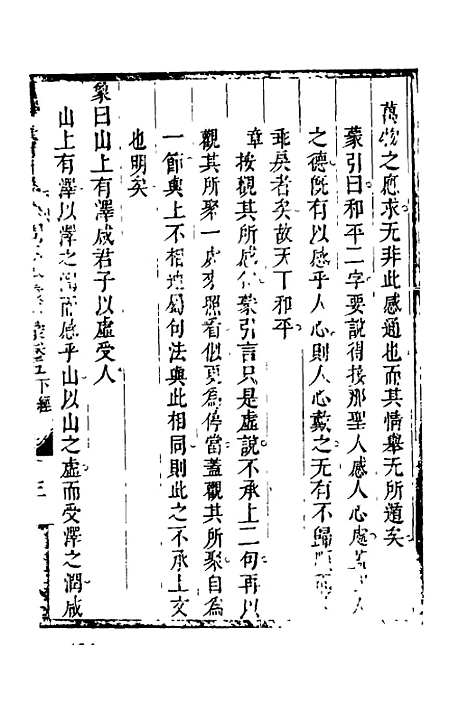 萬物之應求无非此感通也而其情舉无所遁矣
蒙引曰和平二字要說得接那聖人感人心處
之德旣有以感乎人心則人心之无有不歸
乖戾者矣故天下和平
章按觀其所感句蒙引言只是虛說不承上二句再以
觀其所聚一處來照看似更為停當蓋觀其所聚自為
一節與上不相連屬句法與此相同則此之不承上文
也明矣
象曰山上有澤咸君子以虛受人
山上有澤以澤之潤而感乎山以山之虛而受澤之潤咸
下經